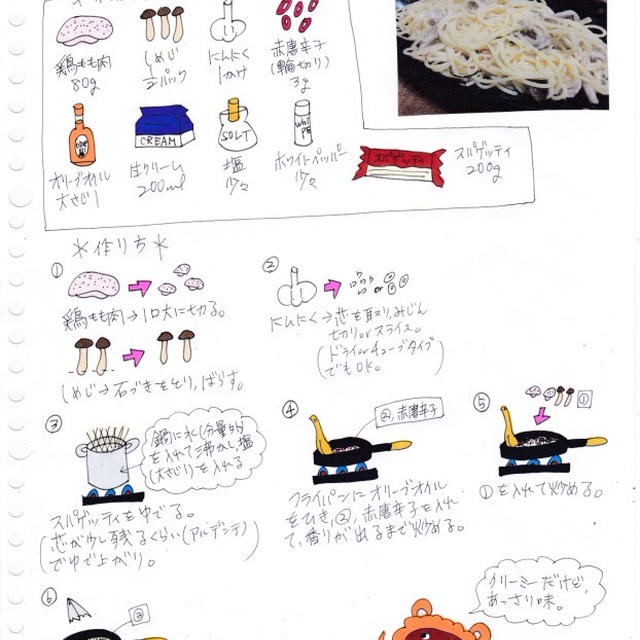 鶏もも肉
80g
しめじ
1/2パック
にんにく
1かけ
赤唐辛子
(輪切り)
3g
オリーブオイル
大さじ1
CREAM
生クリーム
200ml
SOLT
塩
少々
ホワイトペッパー
少々
スパゲッティ
スパゲッティ
200g
*作り方*
①
鶏もも肉→1口大に切る。
しめじ→石づきをとり、ばらす。
②
or
にんにく→芯を取り、みじん
切りorスライス。
(ドライorチューブタイプ
でもOK。)
③
鍋に水(分量外)
を入れて沸かし、塩
(大さじ1)を入れる
スパゲッティをゆでる。
(芯が少し残るくらい(アルデンテ)
でゆで上がり。)
④
②,赤唐辛子
フライパンにオリーブオイル
をひき、②,赤唐辛子を入れ
て、香りが出るまで炒める。
⑤
①
①を入れて炒める。
⑥
③
クリーミーだけど、
あっさり味。